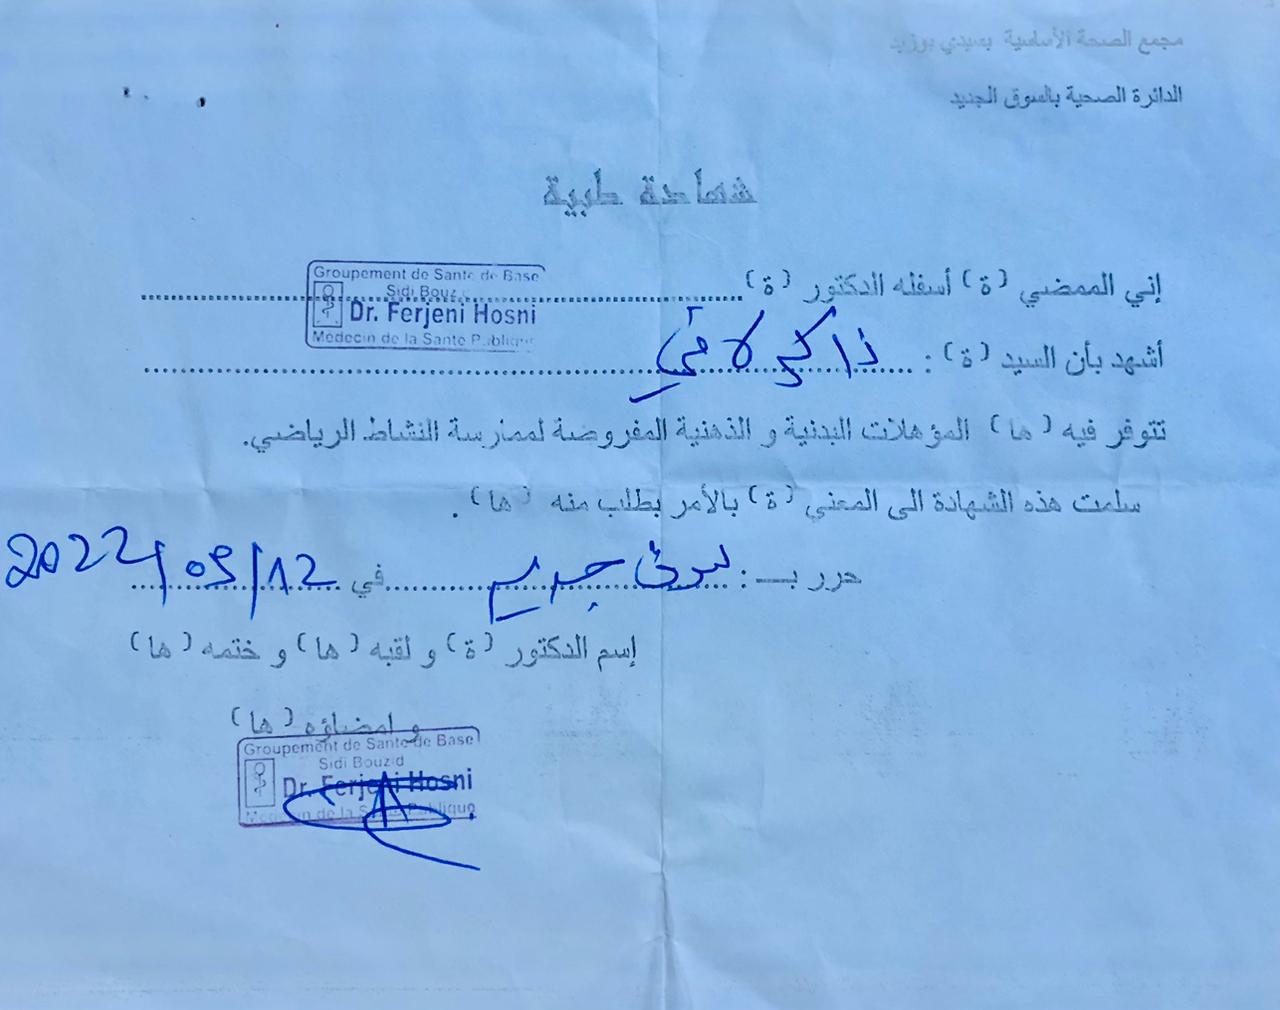 مجمع الصحة الأساسية بسيدي بوزيد
الدائرة الصحية بالسوق الجديد
شهادة طبية
إني الممضي (ة) أسفله الدكتور (ة)
Groupement de Sante de Base
Sidi Bouz
Dr. Ferjeni Hosni
Medecin de la Sante Publique
أشهد بأن السيد (ة) : ذاكر لافي
تتوفر فيه (ها) المؤهلات البدنية و الذهنية المفروضة لممارسة النشاط الرياضي.
سلمت هذه الشهادة الى المعني (ة) بالأمر بطلب منه (ها) .
حرر بـــ : سوق جديد في 2022/09/12
إسم الدكتور (ة) و لقبه (ها) و ختمه (ها)
و امضاؤه (ها)
Groupement de Sante de Base
Sidi Bouzid
Dr. Ferjeni Hosni
Medecin de la Sante Publique